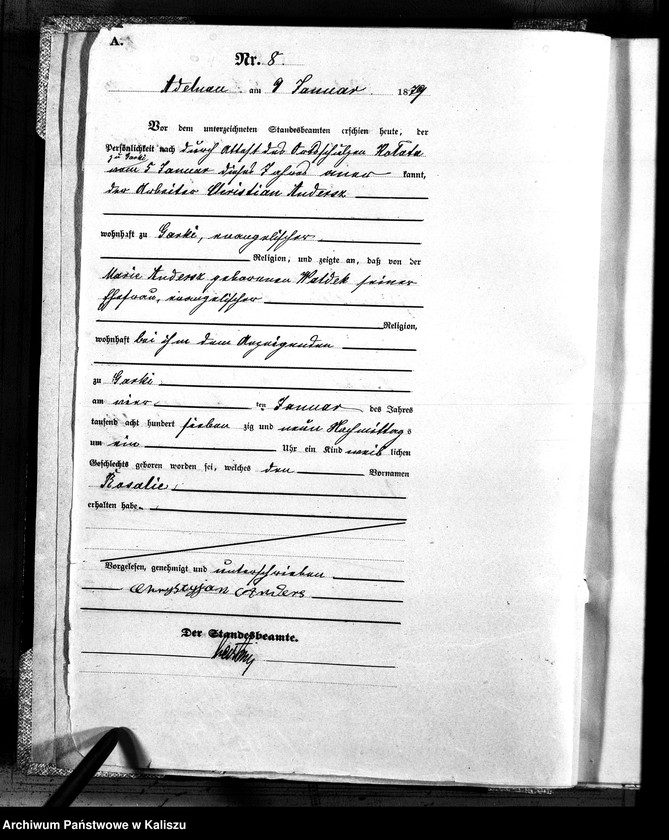 A.
Nr. 8.
Adelnau am 9 Januar 1879
Vor dem unterzeichneten Standesbeamten erschien heute, der
Persönlichkeit nach durch Attest des Ortsschulzen Kołata
zu Garki
vom 5 Januar dieses Jahres aner kannt,
der Arbeiter Christian Andersz
wohnhaft zu Garki, evangelischer
Religion, und zeigte an, daß von der
Marie Andersz geborenen Waldek seiner
Ehefrau, evangelischer
Religion,
wohnhaft bei ihm dem Anzeigenden
zu Garki
am vier ten Januar des Jahres
tausend acht hundert sieben zig und neun Nachmittag s
um ein Uhr ein Kind weib lichen
Geschlechts geboren worden sei, welches den Vornamen
Rosalie
erhalten habe.
Vorgelesen, genehmigt und unterschrieben
Chrystyjan Anders
Der Standesbeamte.
Archiwum Państwowe w Kaliszu